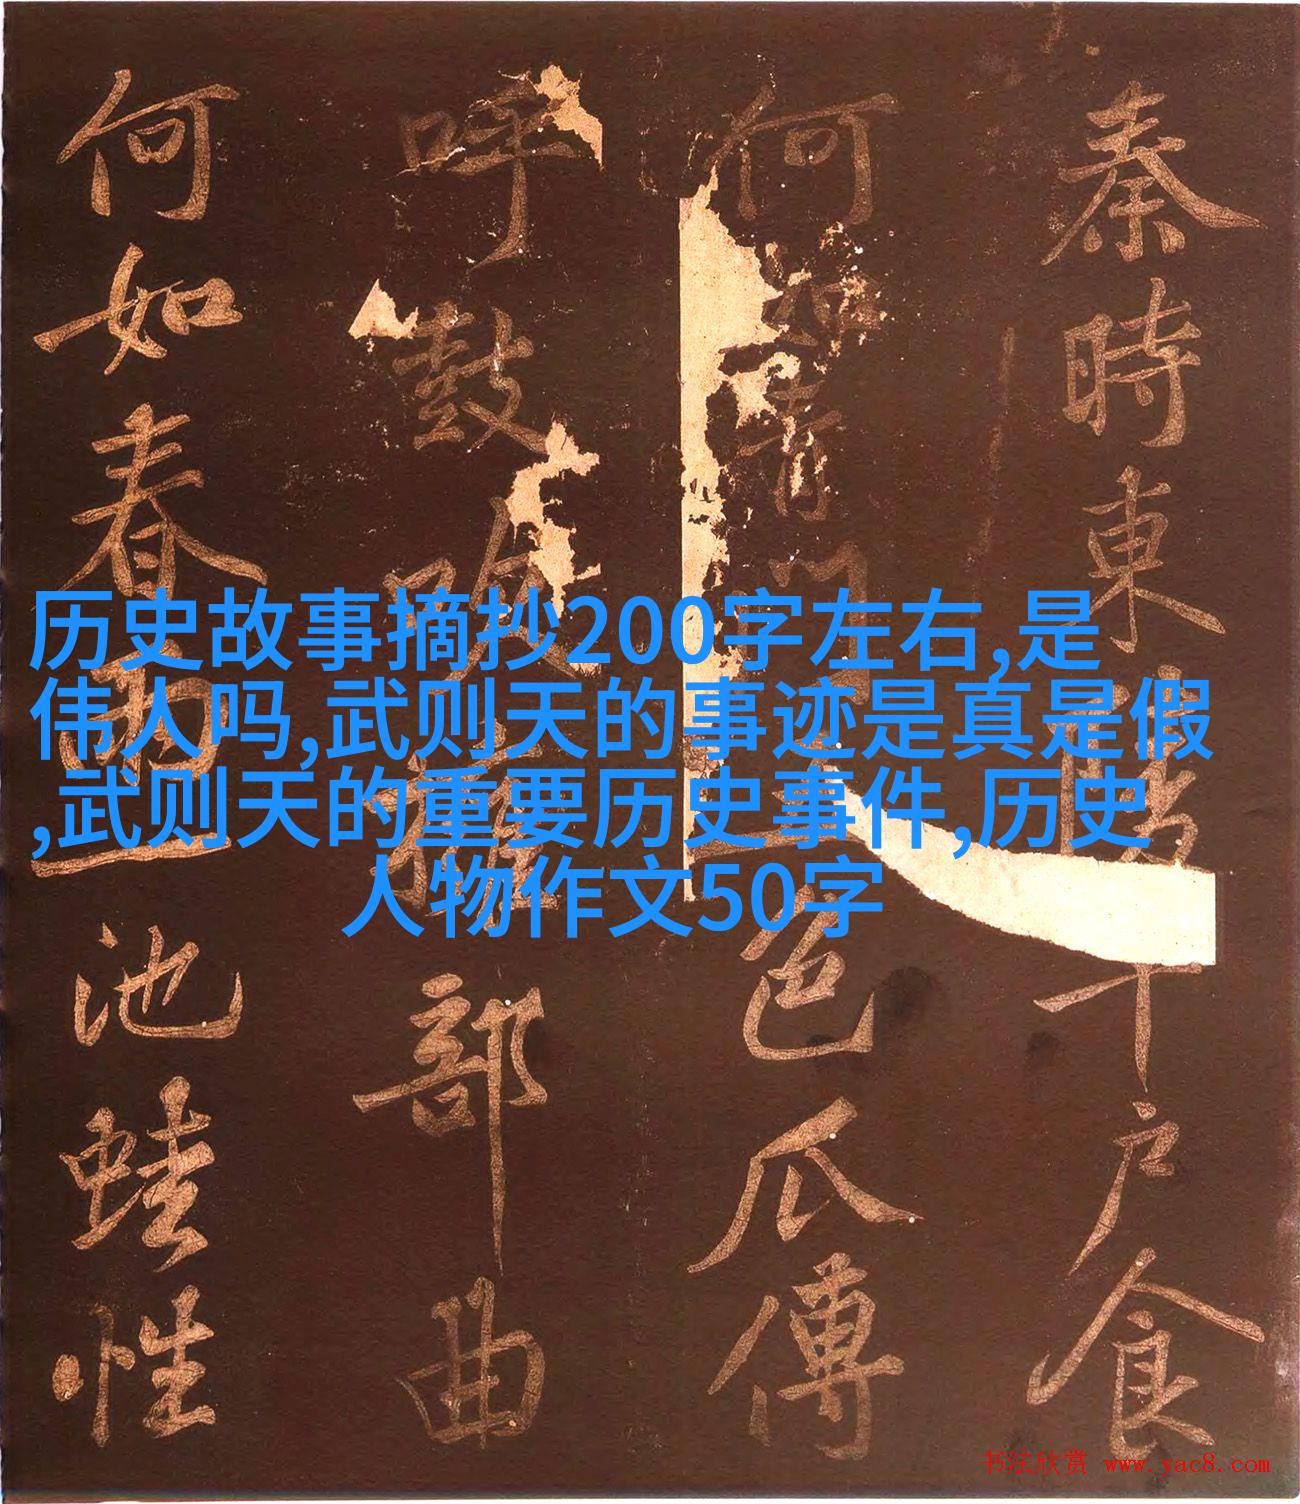 秦時東陵千戶食
何如青門五色瓜傳
呼鼓吹擁部曲
何如春雨池蛙性
历史故事摘抄200字左右,是
伟人吗,武则天的事迹是真是假
,武则天的重要历史事件,历史
人物作文50字
书法欣赏 www.yac8.com